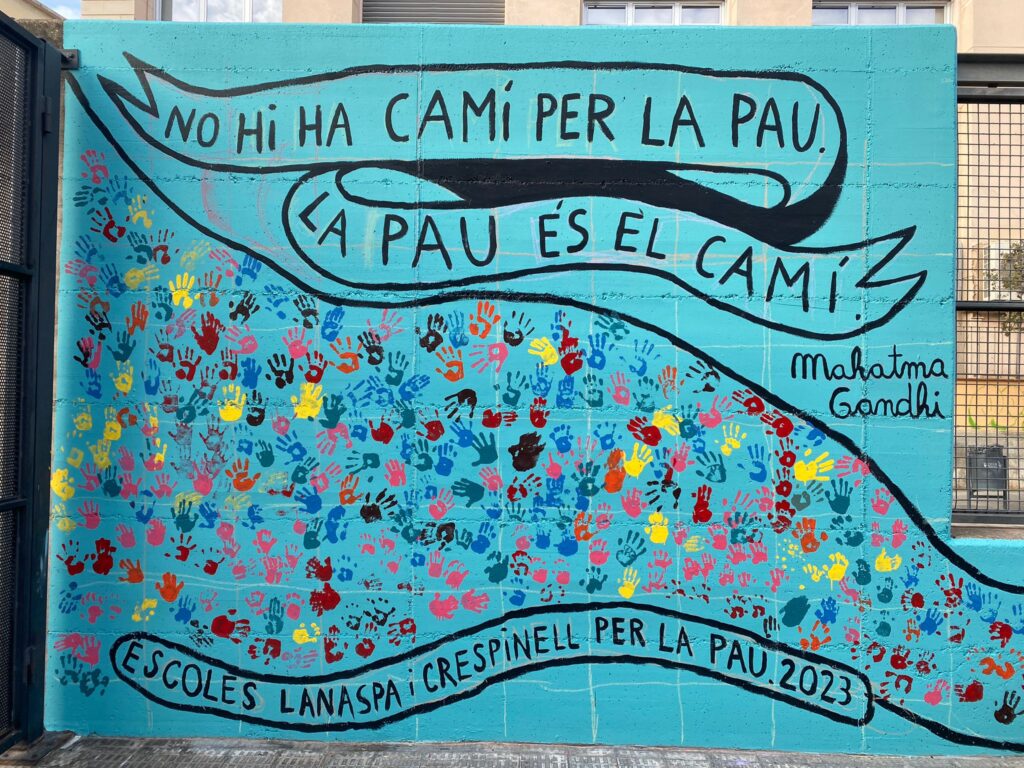 NO Hi HA CAMÍ PER LA PAU.
LA PAU ÉS EL CAMÍ.
Mahatma
Gandhi
ESCOLES LANASPA i CRESPINELL PER LA PAU. 2023